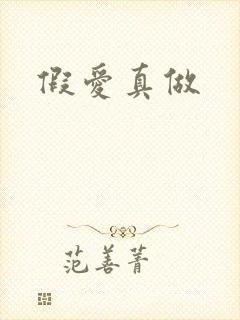 假愛真做
范善菁